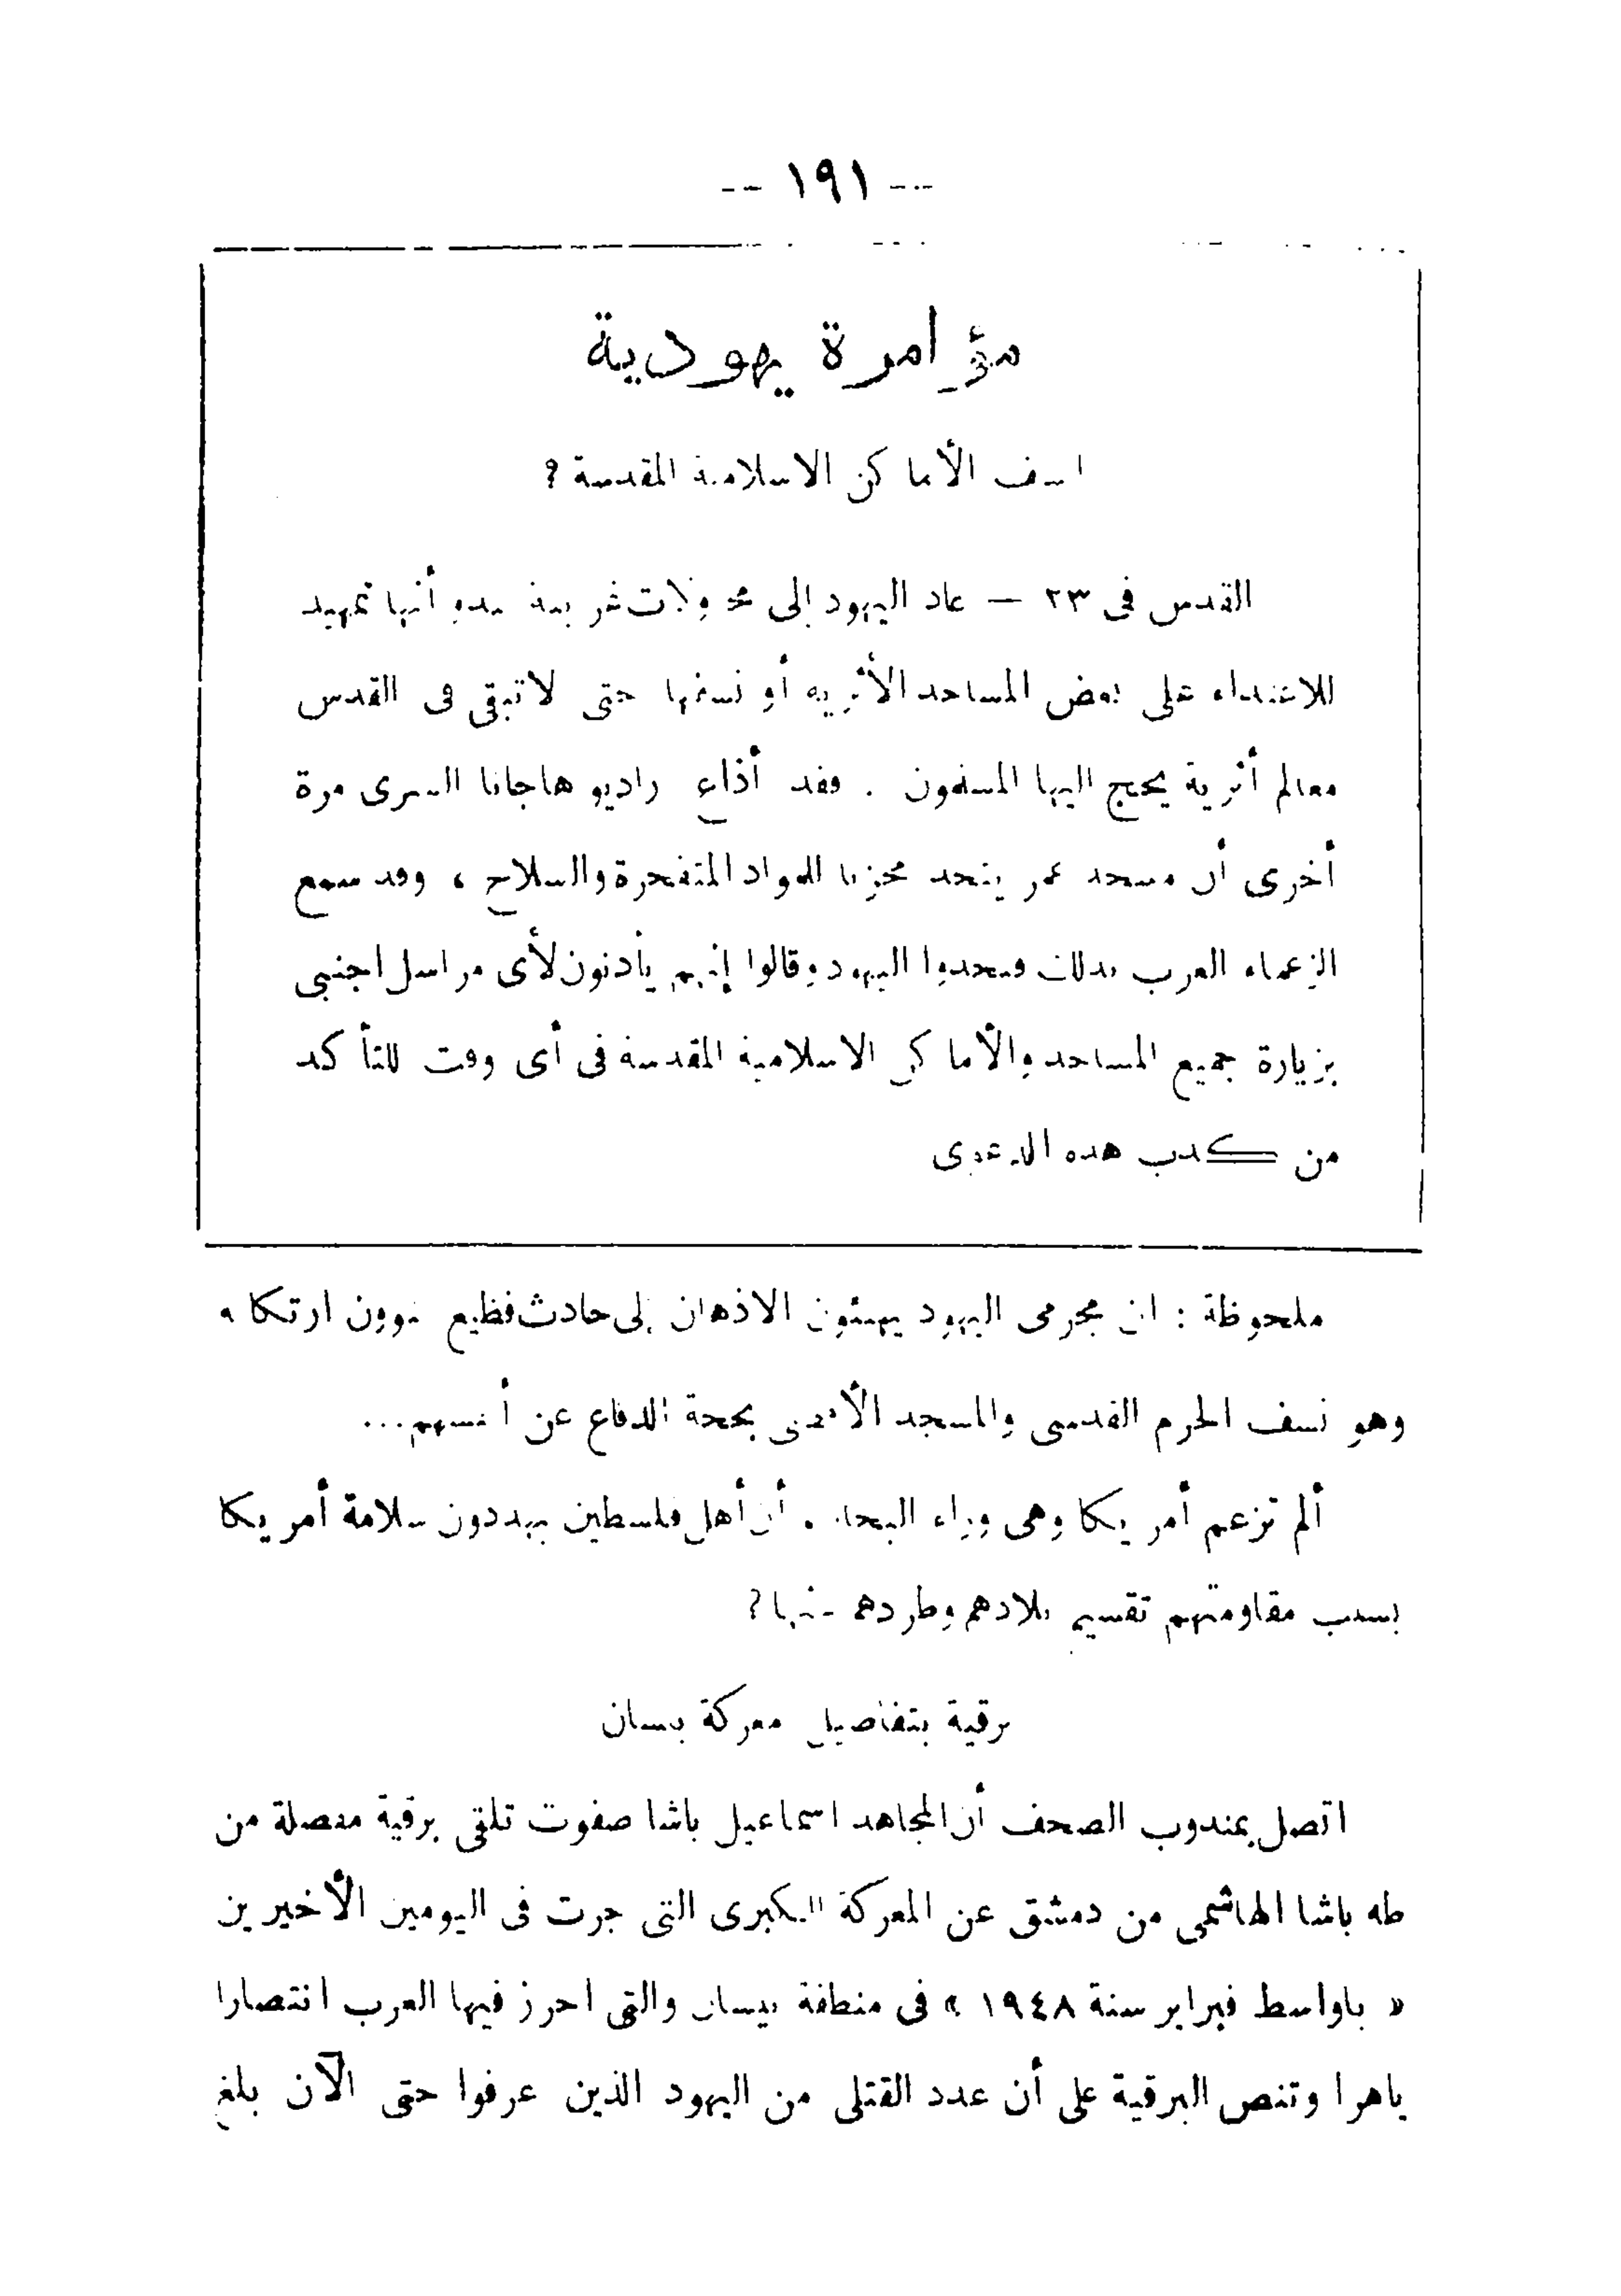 -- ١٩١ --
مؤامرة يهودية
الأماكن الاسلامية المقدسة ?
القدس فى ٢٣ — عاد اليهود إلى أنها تمهيد
للاعتداء على بعض المساجد الأثرية أو نسفها حتى لا تبقى فى القدس
معالم أثرية يحج اليها المسلمون . فقد أذاع راديو هاجانا السرى مرة
أخرى أن مسجد عمر يتخذ مخزنا للمواد المتفجرة والسلاح ، وقد سمع
الزعماء العرب بذلك اليهود وقالوا إنهم يأذنون لأى مراسل اجنبى
بزيارة جميع المساجد والأماكن الاسلامية المقدسة فى أى وقت للتأكد
من كذب هذه الدعوى
ملحوظة : ان مجرمى اليهود يهيئون الاذهان إلى حادث فظيع ينوون ارتكابه
وهو نسف الحرم القدسى والمسجد الأقصى بحجة الدفاع عن أنفسهم...
ألم تزعم أمريكا وهى وراء البحار . أن أهل فلسطين يهددون سلامة أمريكا
بسبب مقاومتهم تقسيم بلادهم وطردهم منها ?
برقية بتفاصيل معركة بيسان
اتصل بمندوب الصحف أن المجاهد اسماعيل باشا صفوت تلقى برقية مفصلة من
طه باشا الهاشمى من دمشق عن المعركة الكبرى التى جرت فى اليومين الأخيرين
« باواسط فبراير سنة ١٩٤٨ » فى منطقة بيسان والتى احرز فيها العرب انتصارا
باهرا وتنص البرقية على أن عدد القتلى من اليهود الذين عرفوا حتى الآن بلغ